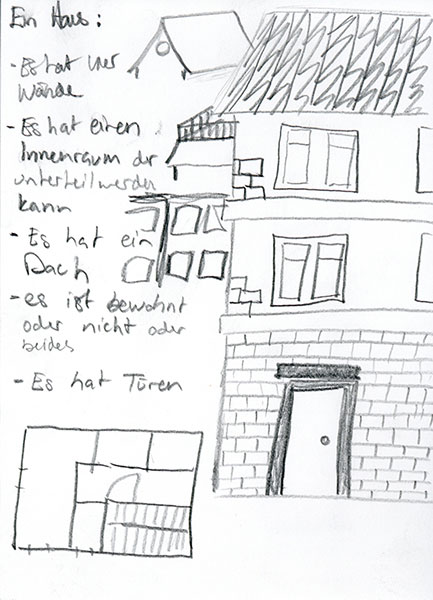 Ein Haus:
- Es hat vier
Wände
- Es hat einen
Innenraum der
unterteilt werden
kann
- Es hat ein
Dach
- es ist bewohnt
oder nicht oder
beides
- Es hat Türen